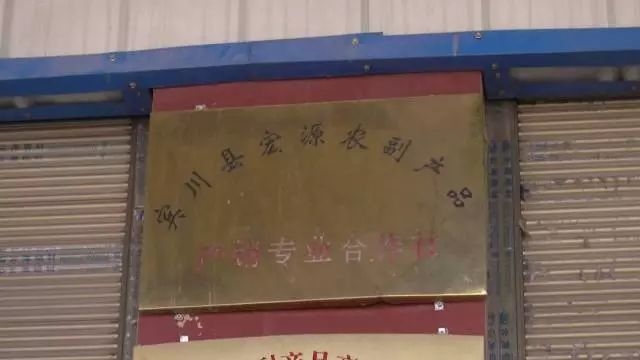 宾川县宏源农副产品
产销专业合作社